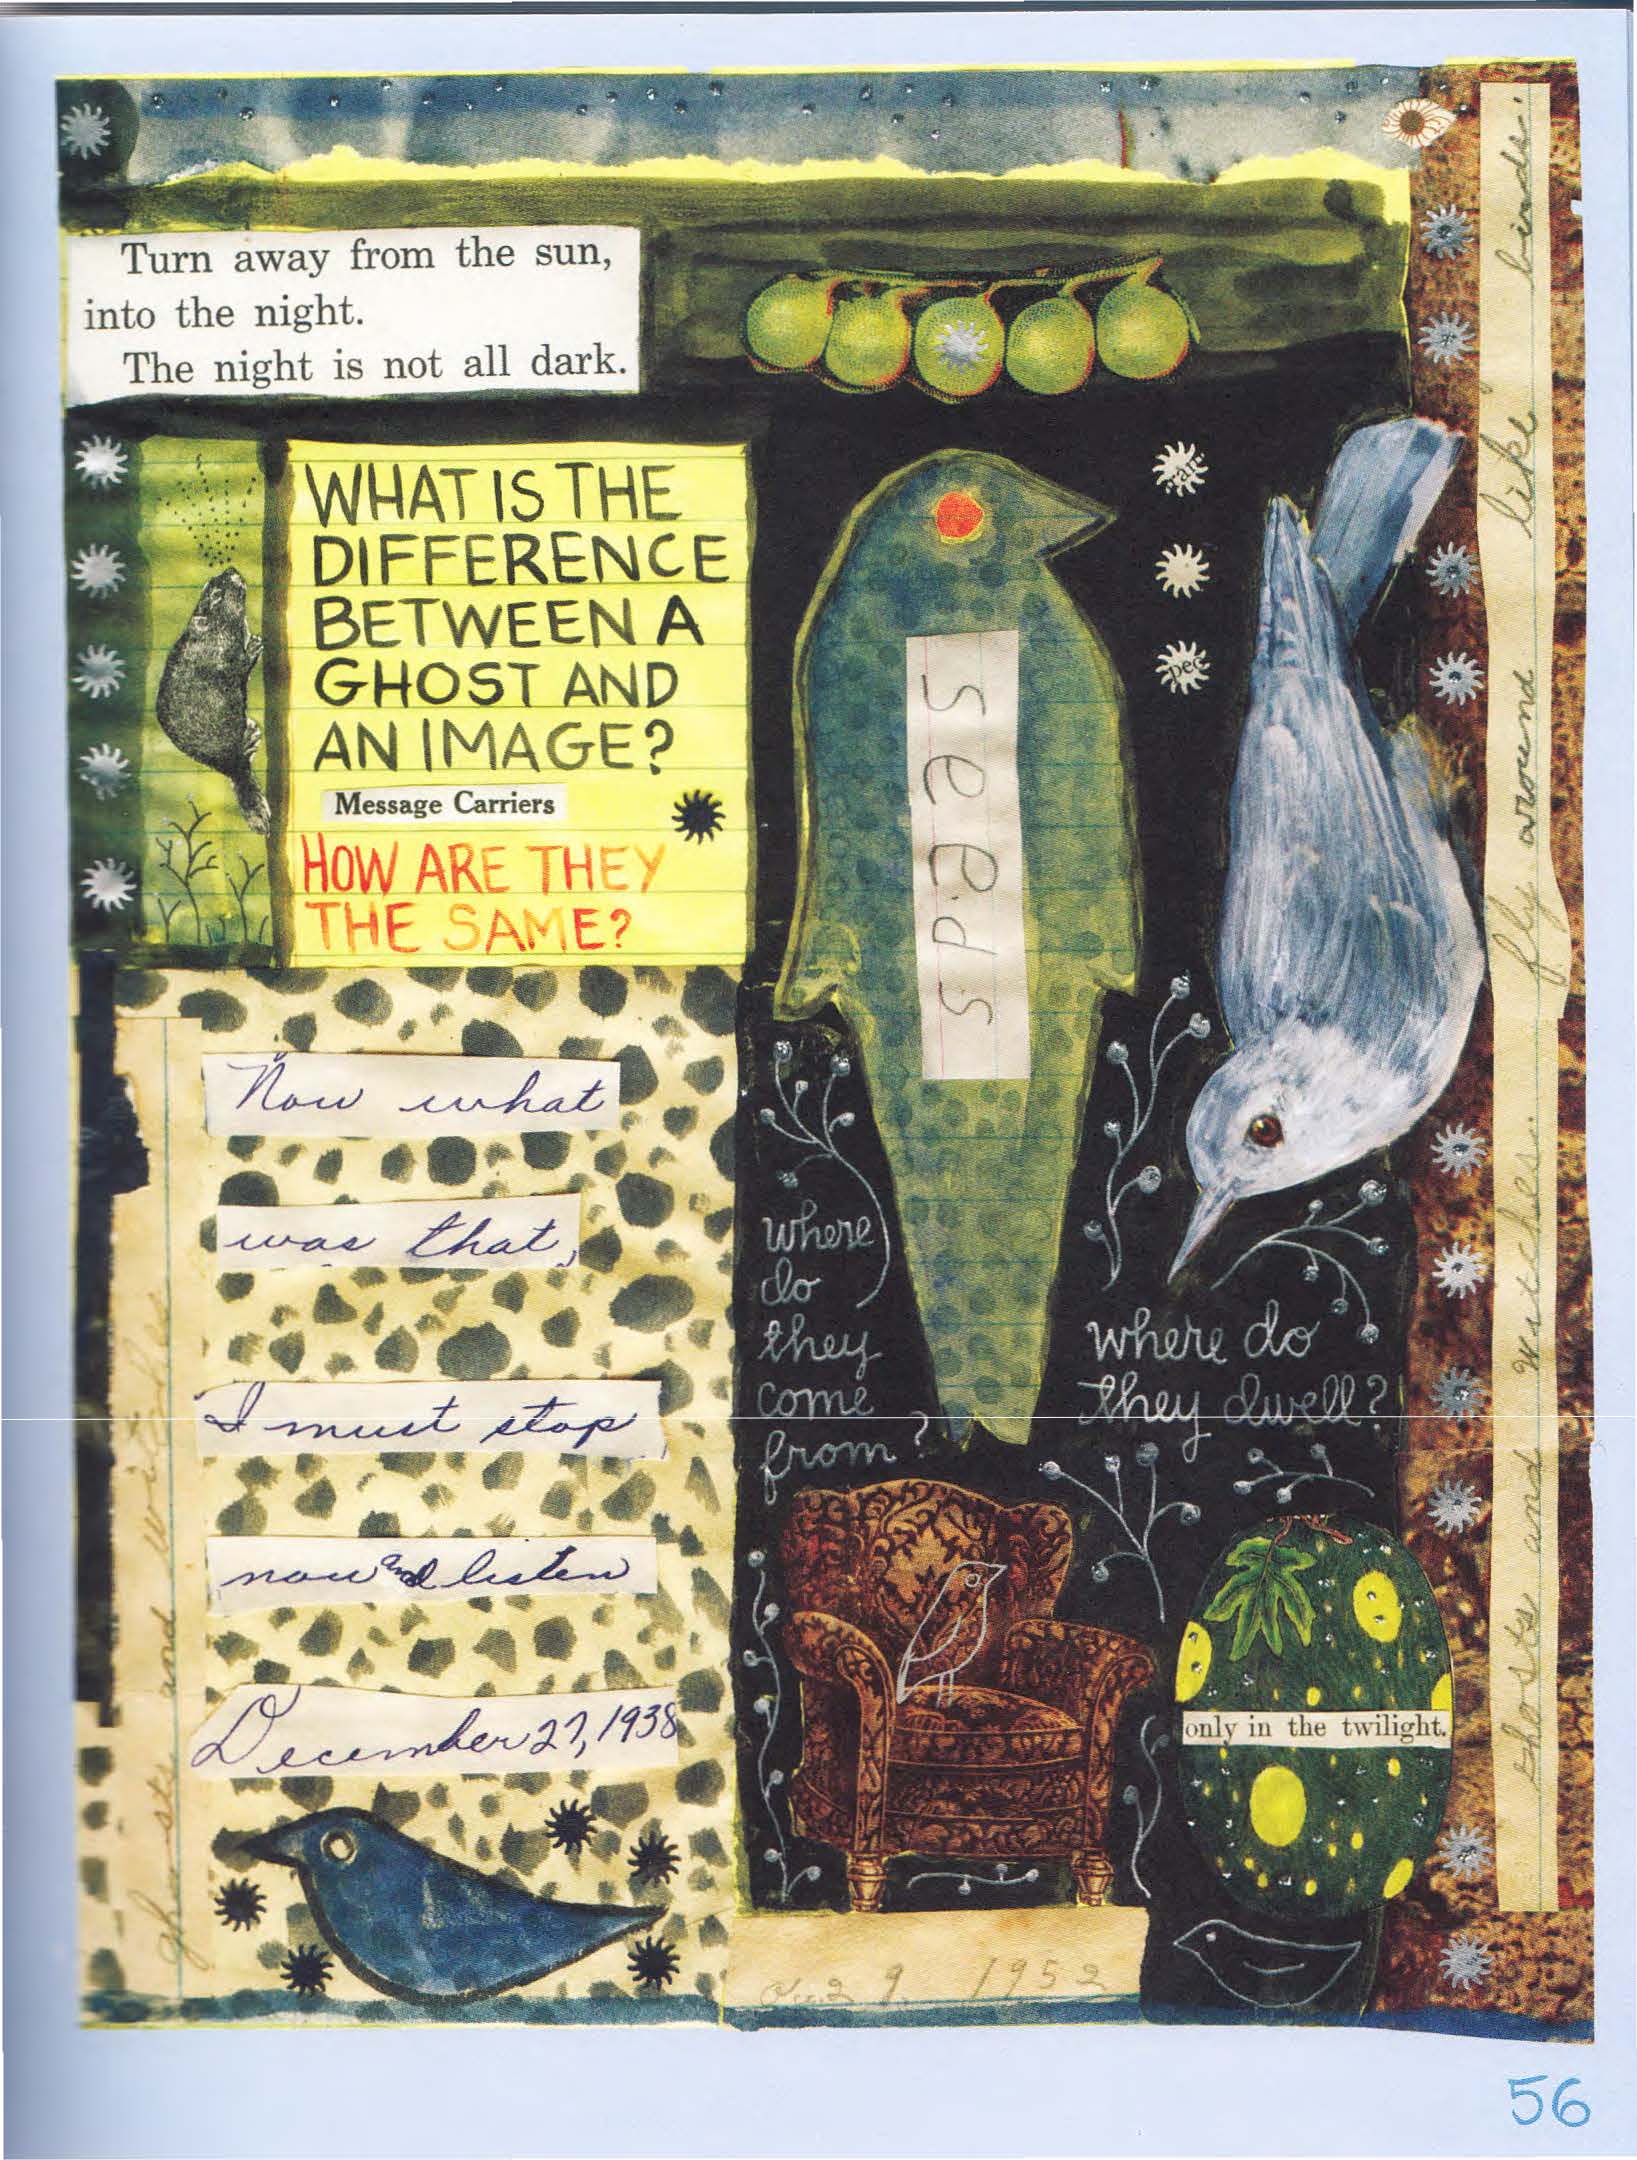 Turn away from the sun,
into the night.
The night is not all dark.
WHAT IS THE
DIFFERENCE
BETWEEN A
GHOST AND
AN IMAGE?
Message Carriers
HOW ARE THEY
THE SAME?
seeds
pec
Now what
was that,
I must stop
now and listen
December 27, 1938
where
do
they
come
from?
where do
they dwell?
only in the twilight.
29, 1952
ghosts and witches
ghosts and witches fly around like birds.
56